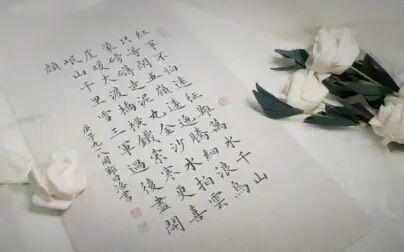 紅軍不怕遠征難萬水千山
只等閑五嶺逶迤騰細浪烏
蒙磅礴走泥丸金沙水拍雲
崖暖大渡橋橫鐵索寒更喜
岷山千里雪三軍過後盡開
顏
庚子九八